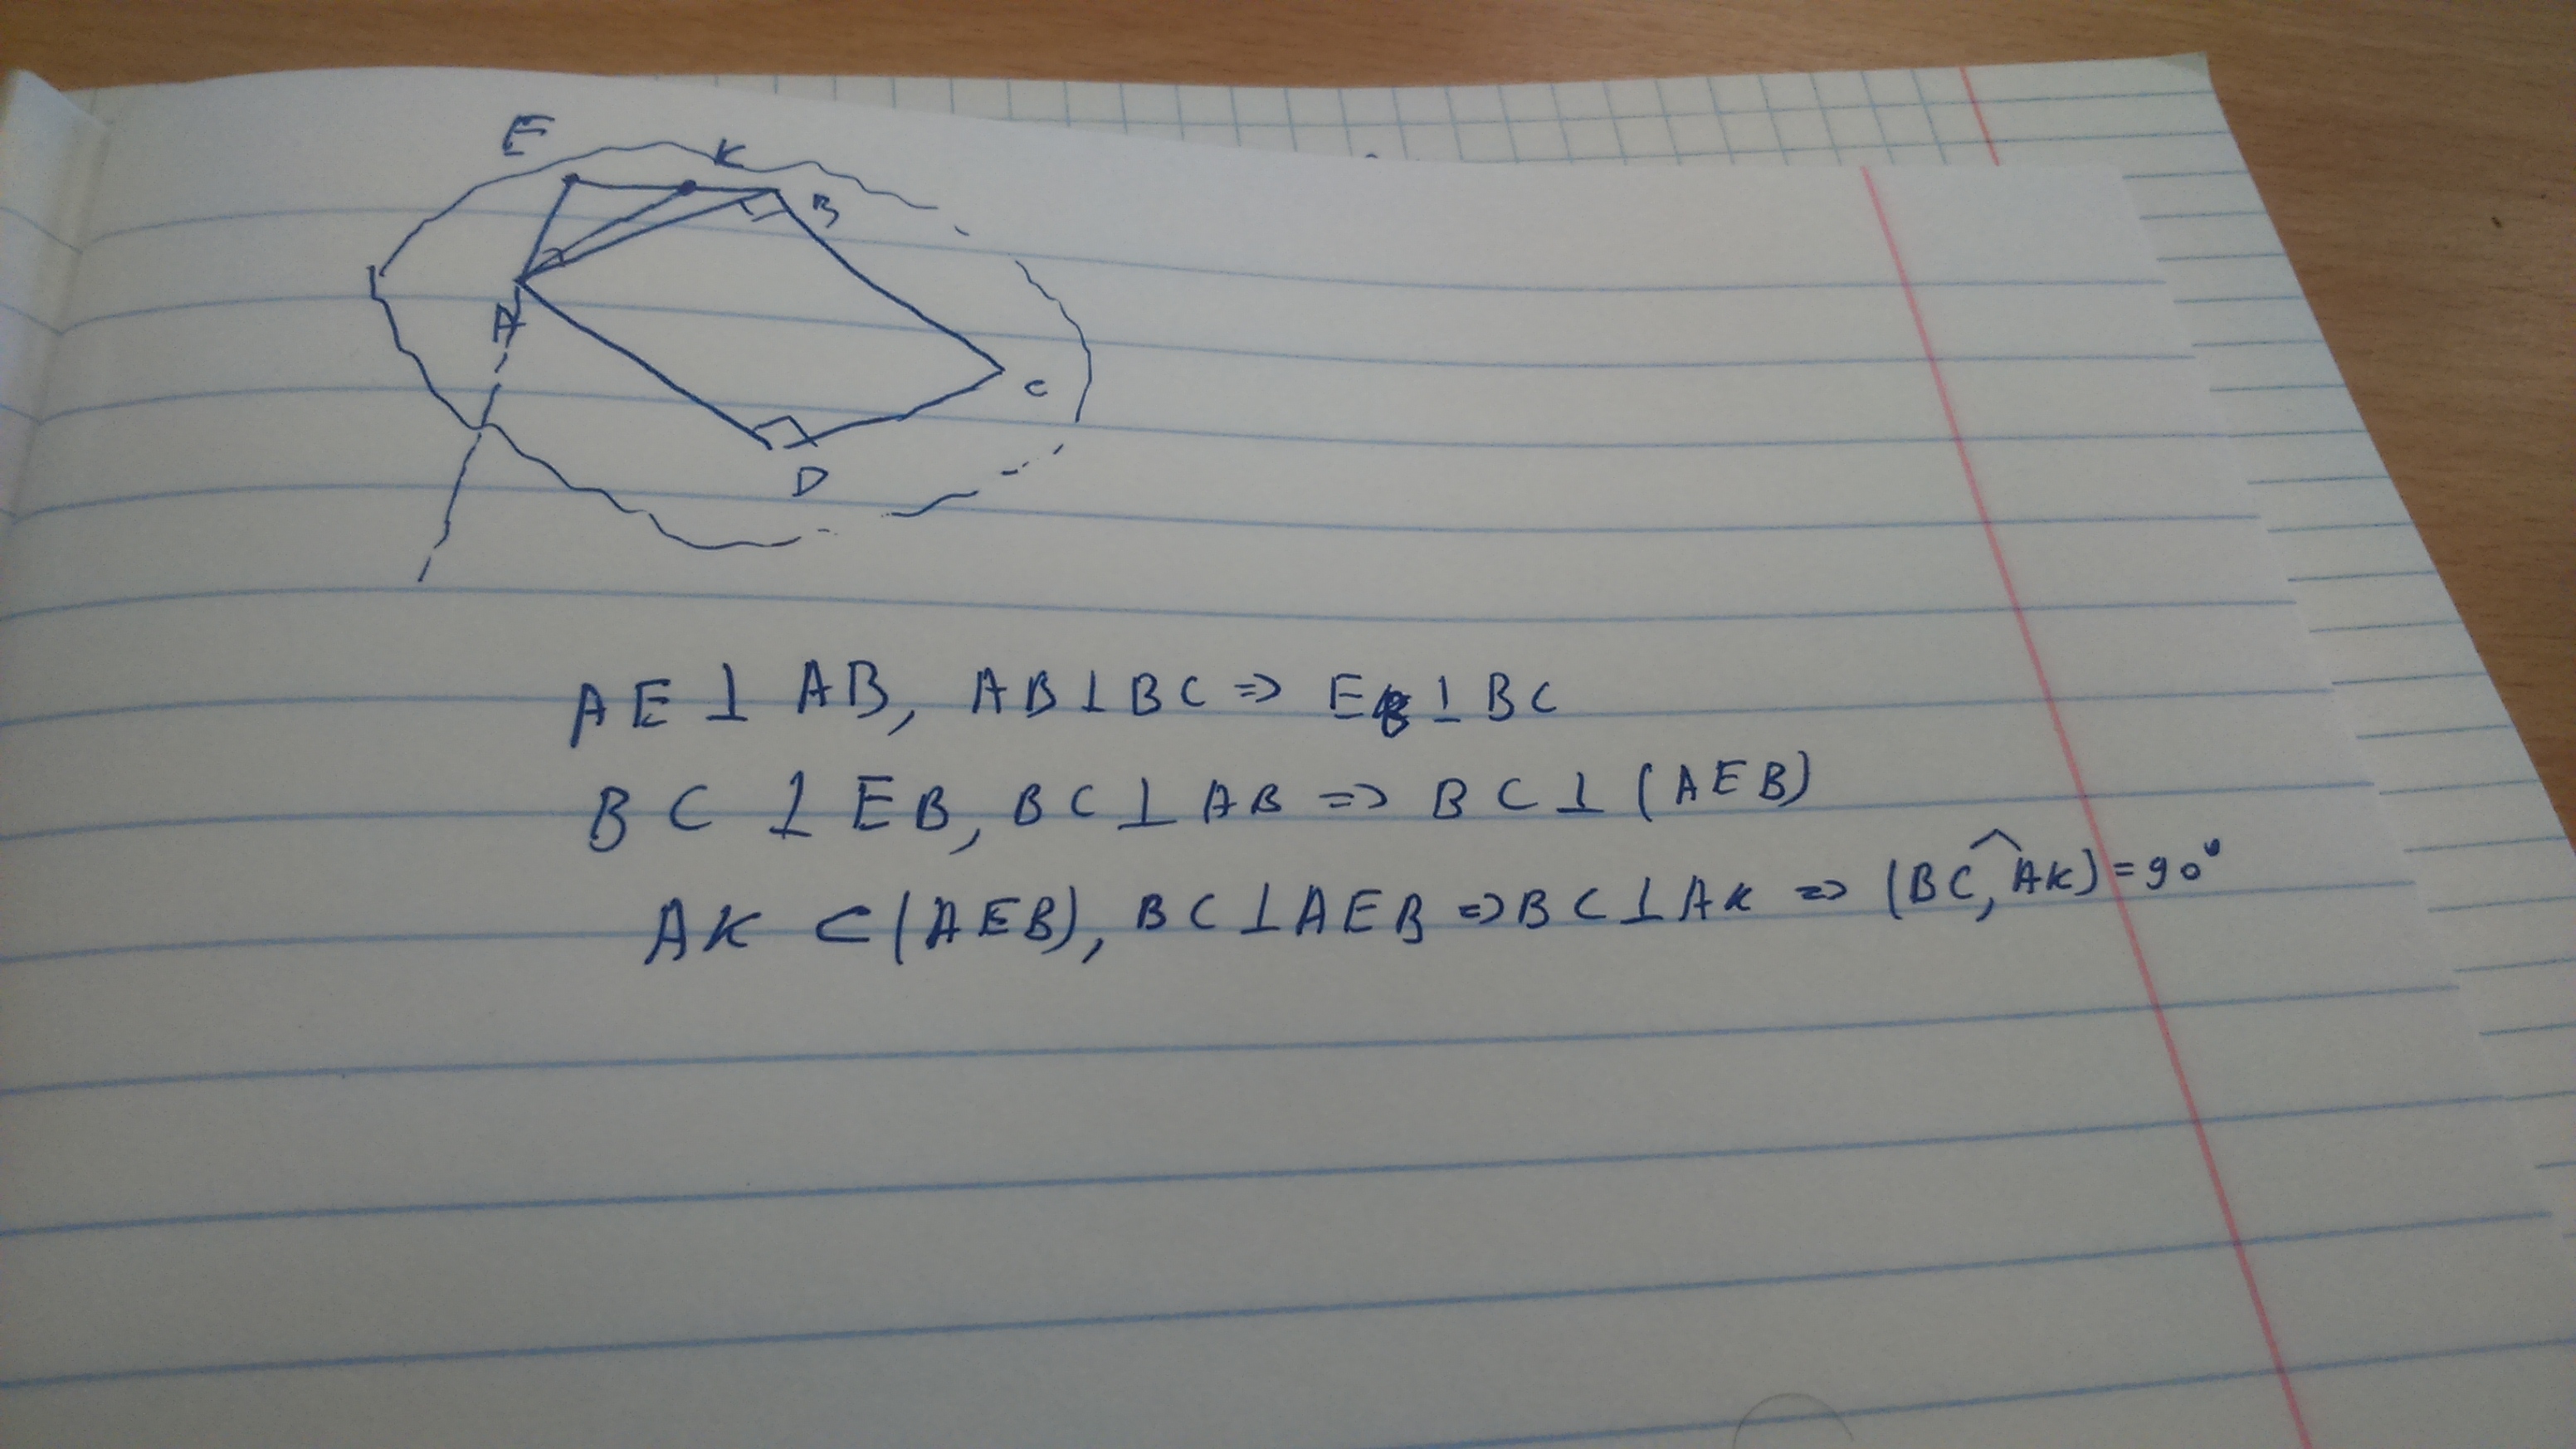 E
K
B
A
C
D
AE ⊥ AB, AB ⊥ BC => EB ⊥ BC
BC ⊥ EB, BC ⊥ AB => BC ⊥ (AEB)
AK ⊂ (AEB), BC ⊥ AEB => BC ⊥ AK => (BC,^AK) = 90°